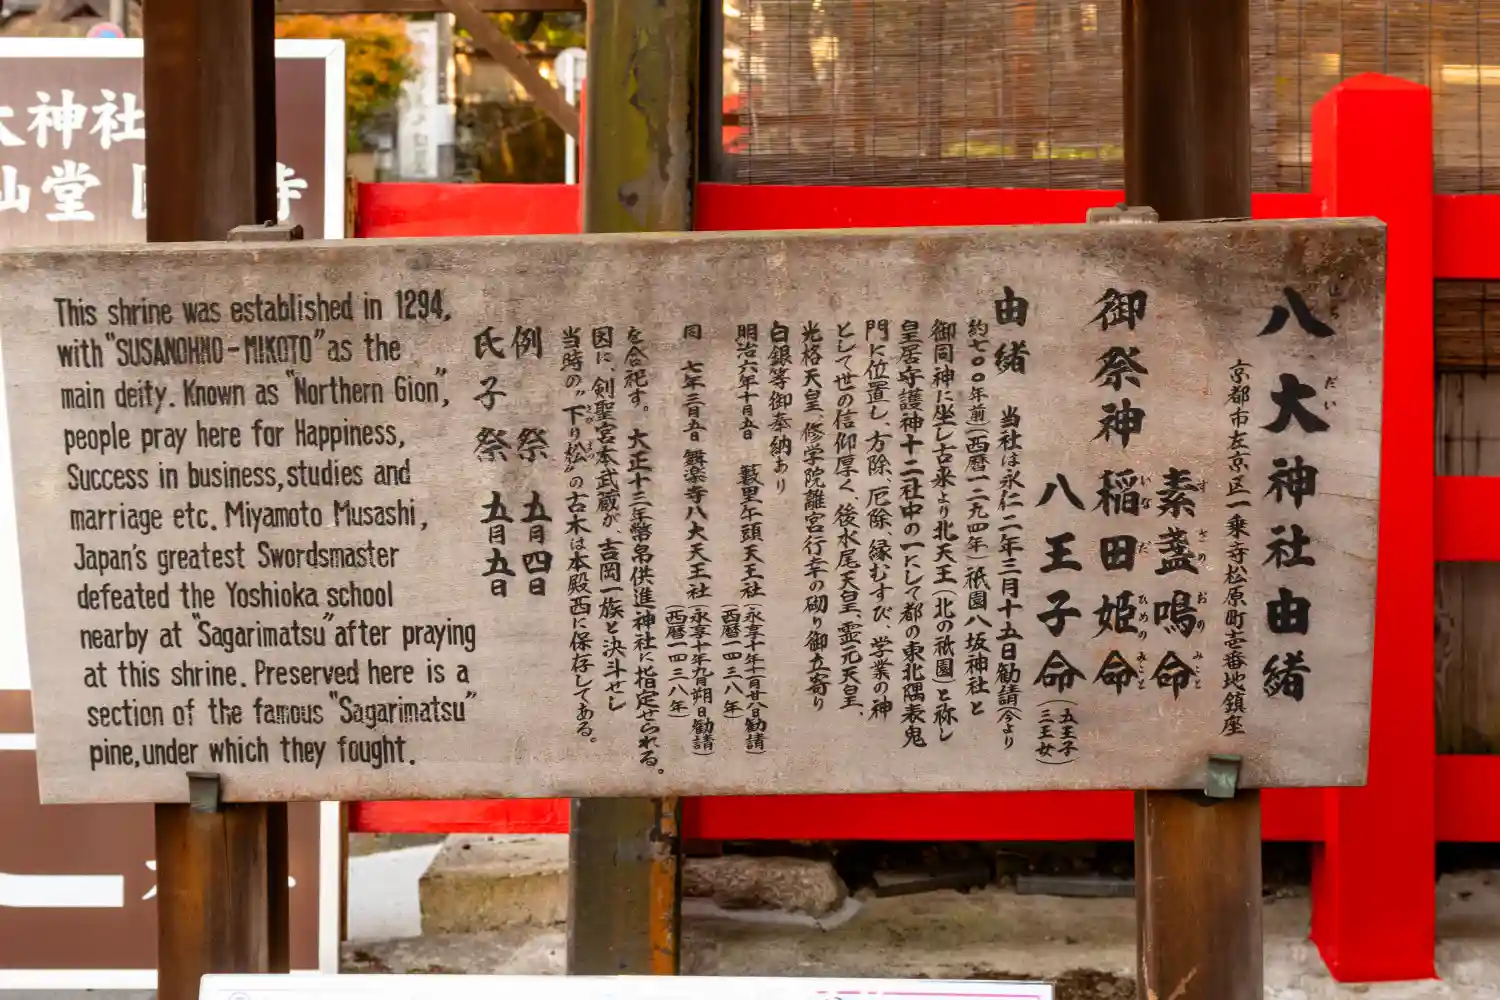 大神社
山堂
寺
This shrine was established in 1294,
with "SUSANOHNO-MIKOTO" as the
main deity. Known as "Northern Gion",
people pray here for Happiness,
Success in business, studies and
marriage etc. Miyamoto Musashi,
Japan's greatest Swordsmaster
defeated the Yoshioka school
nearby at "Sagarimatsu" after praying
at this shrine. Preserved here is a
section of the famous "Sagarimatsu"
pine, under which they fought.
八大神社由緒
京都市左京区一乗寺松原町壱番地鎮座
御祭神 素盞嗚命
稲田姫命
八王子命(五王子 三王女)
由緒 当社は永仁二年三月十五日勧請(今より
約七〇〇年前)(西暦一二九四年)祇園八坂神社と
御同神に坐し古来より北天王(北の祇園)と称し
皇居守護神十二社中の一にして都の東北隅表鬼
門に位置し、方除、厄除、縁むすび、学業の神
として世の信仰厚く、後水尾天皇、霊元天皇、
光格天皇、修学院離宮行幸の砌り御立寄り
白銀等御奉納あり
明治六年十月五日 藪里午頭天王社(永享十年十一月廿八日勧請 西暦一四三八年)
同 七年三月五日 舞楽寺八大天王社(永享十年九月朔日勧請 西暦一四三八年)
を合祀す。大正十三年幣帛供進神社に指定せられる。
因に、剣聖宮本武蔵が、吉岡一族と決斗せし
当時の"下り松"の古木は本殿西に保存してある。
例祭 五月四日
氏子祭 五月五日